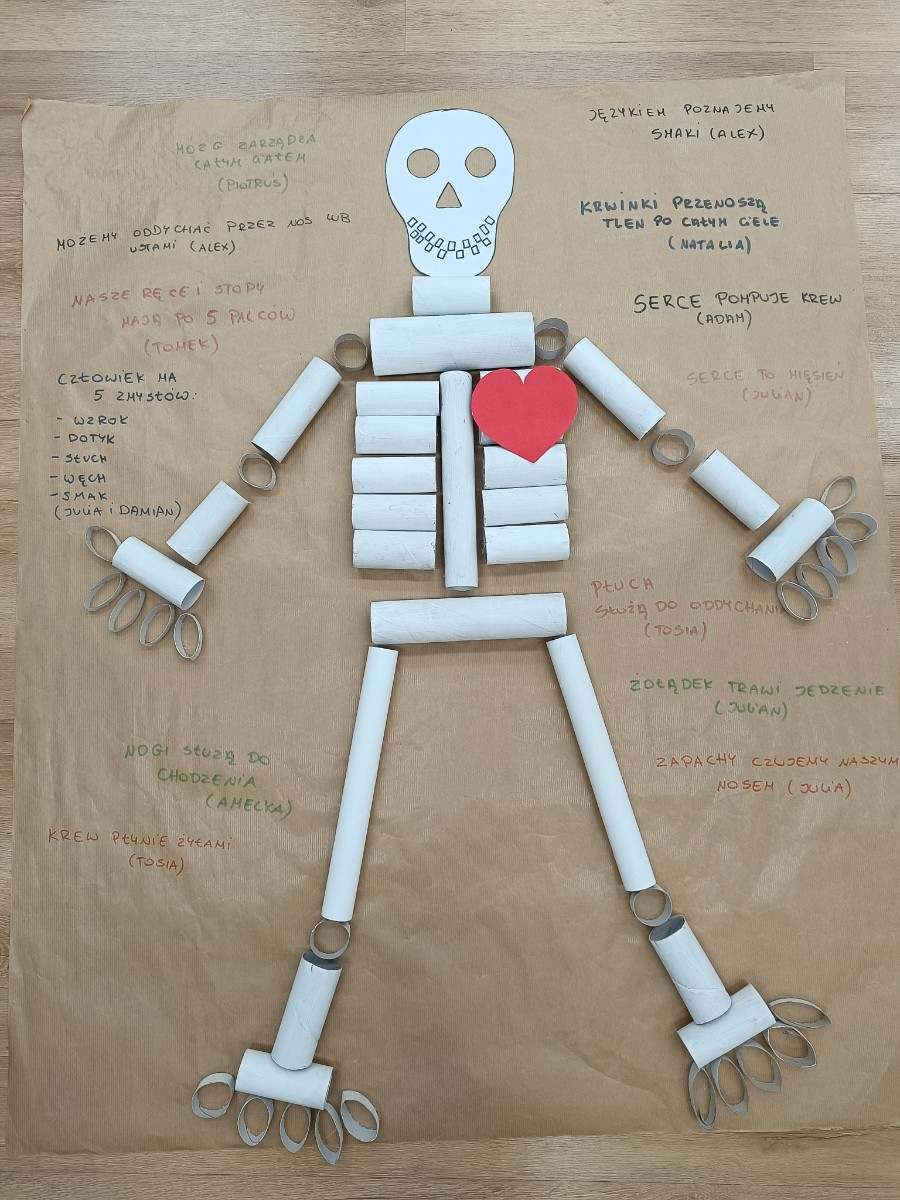 MÓZG ZARZĄDZA
CAŁYM CIAŁEM
(PIOTRUŚ)
MOŻEMY ODDYCHAĆ PRZEZ NOS LUB
USTAMI (ALEX)
NASZE RĘCE I STOPY
MAJĄ PO 5 PALCÓW
(TOMEK)
CZŁOWIEK MA
5 ZMYSŁÓW:
- WZROK
- DOTYK
- SŁUCH
- WĘCH
- SMAK
(JULIA I DAMIAN)
NOGI SŁUŻĄ DO
CHODZENIA
(AMELKA)
KREW PŁYNIE ŻYŁAMI
(TOSIA)
JĘZYKIEM POZNAJEMY
SMAKI (ALEX)
KRWINKI PRZENOSZĄ
TLEN PO CAŁYM CIELE
(NATALIA)
SERCE POMPUJE KREW
(ADAM)
SERCE TO MIĘSIEŃ
(JULIAN)
PŁUCA
SŁUŻĄ DO ODDYCHANIA
(TOSIA)
ŻOŁĄDEK TRAWI JEDZENIE
(JULIAN)
ZAPACHY CZUJEMY NASZYM
NOSEM (JULIA)